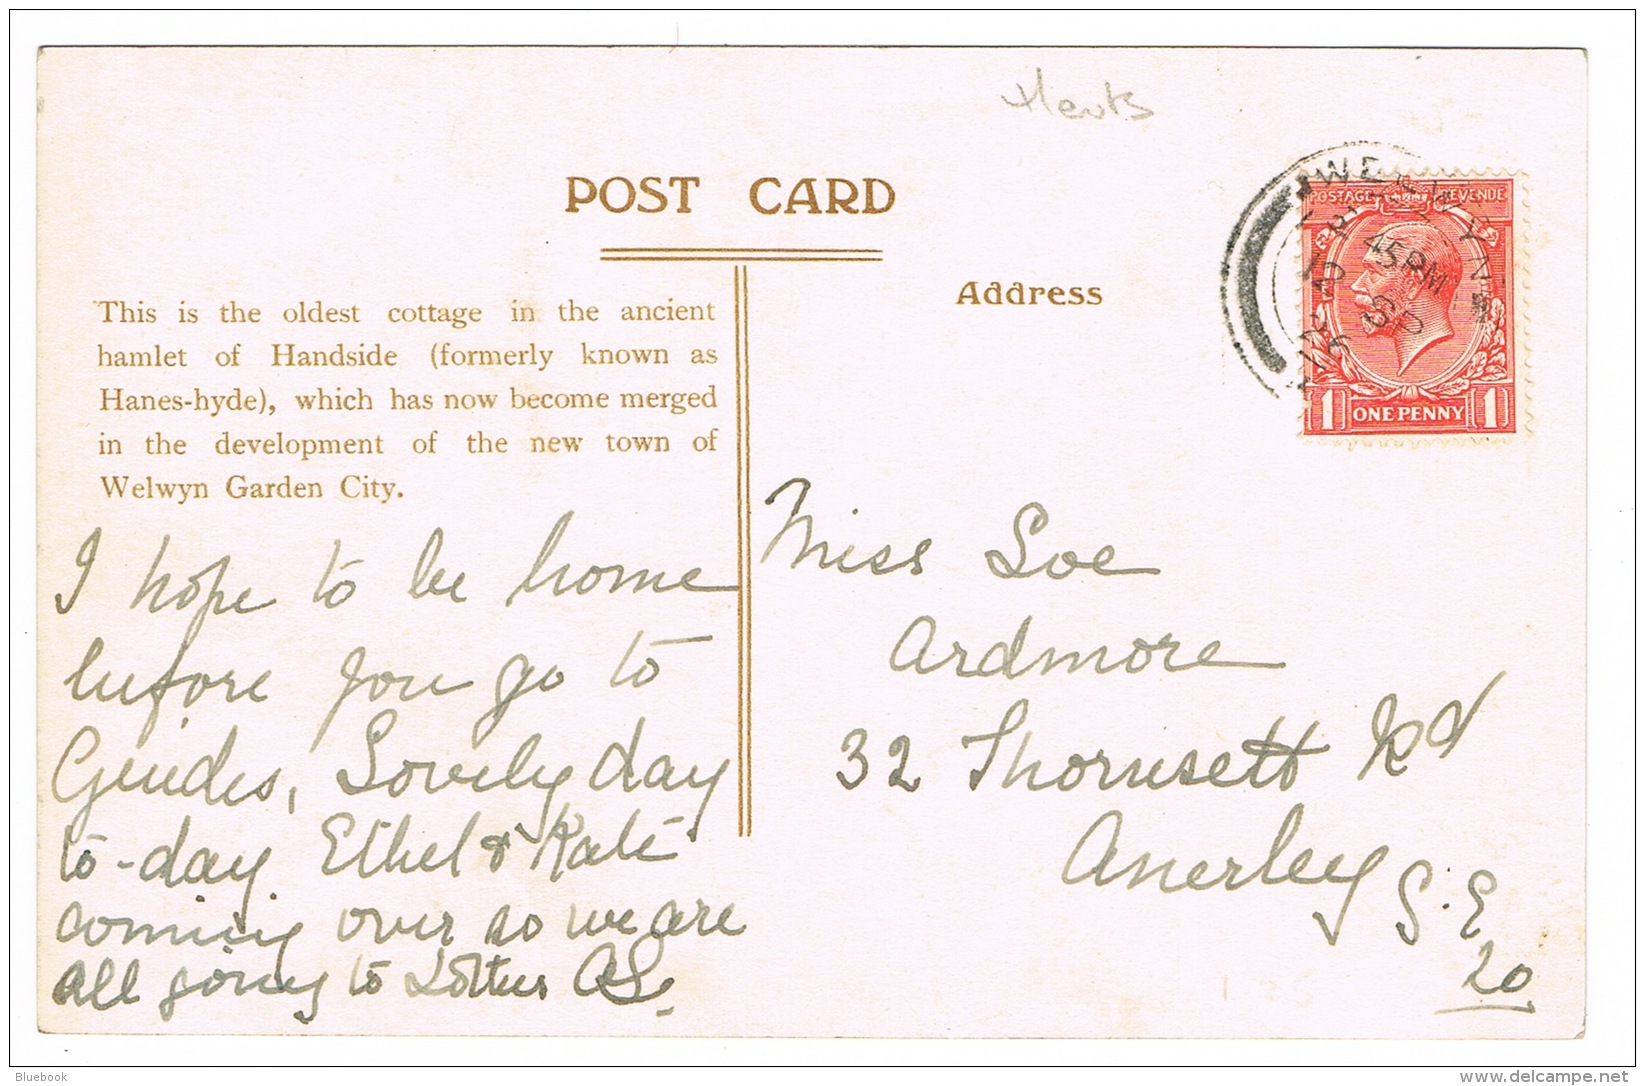 Herts
POST CARD
This is the oldest cottage in the ancient
hamlet of Handside (formerly known as
Hanes-hyde), which has now become merged
in the development of the new town of
Welwyn Garden City.
Address
WELWYN
45 PM
POSTAGE REVENUE
1 ONE PENNY 1
I hope to be home
before you go to
Guides, Lovely day
to-day. Ethel & Kate
coming over so we are
all going to
Miss Loe
Ardmore
32 Thornsett Rd
Anerley S.E
20
Bluebook
delcampe.net